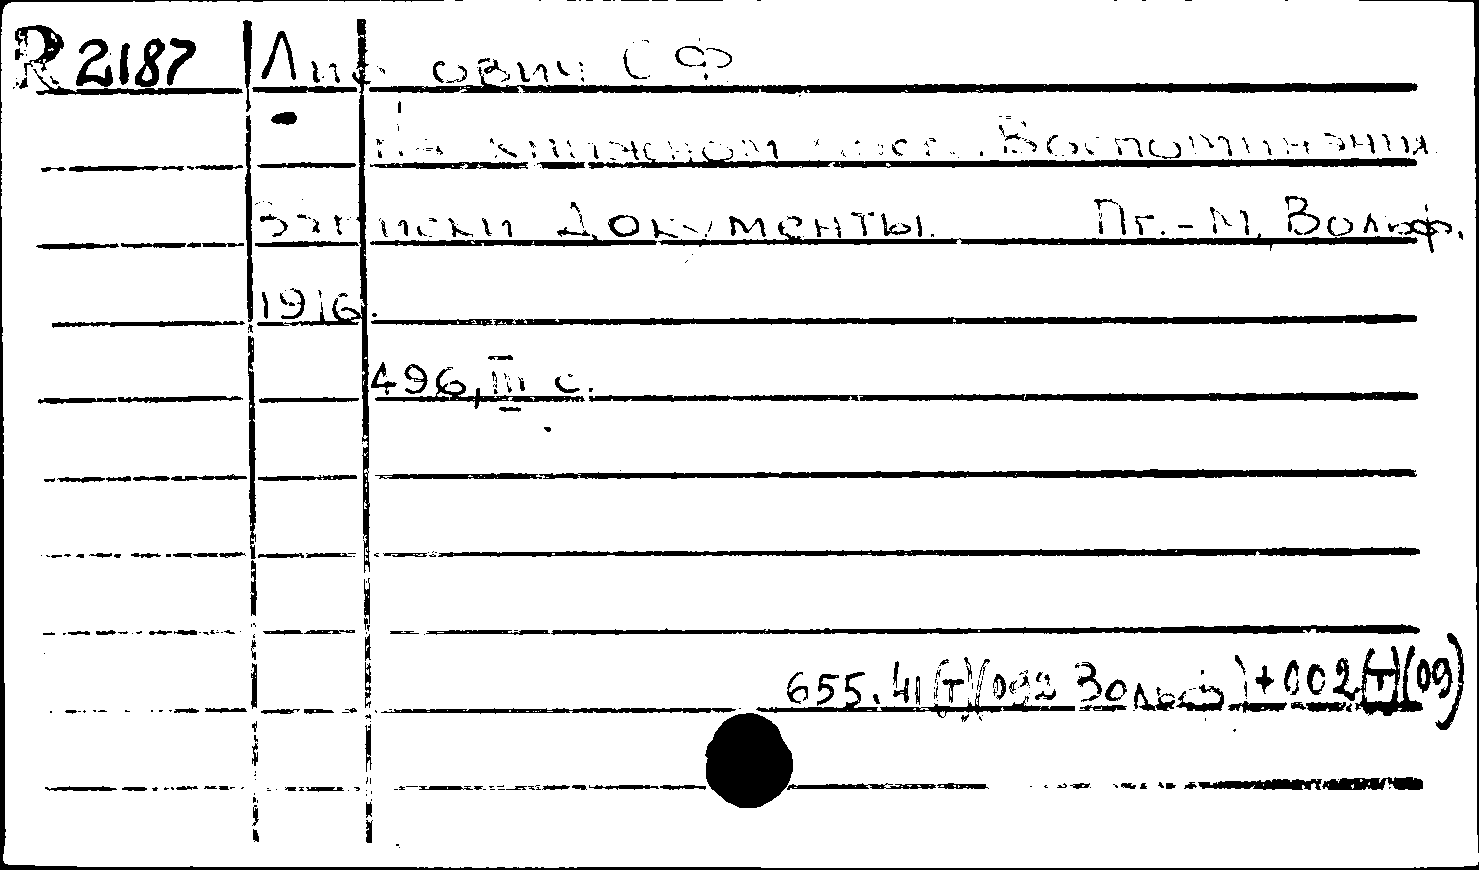 R 2187 Либрович С Ф
На книжном посту. Воспоминания
записки документы. Пг.-М, Вольф.
1916.
496, III с.
655.41(Т)(092 Вольф)+002(Т)(09)